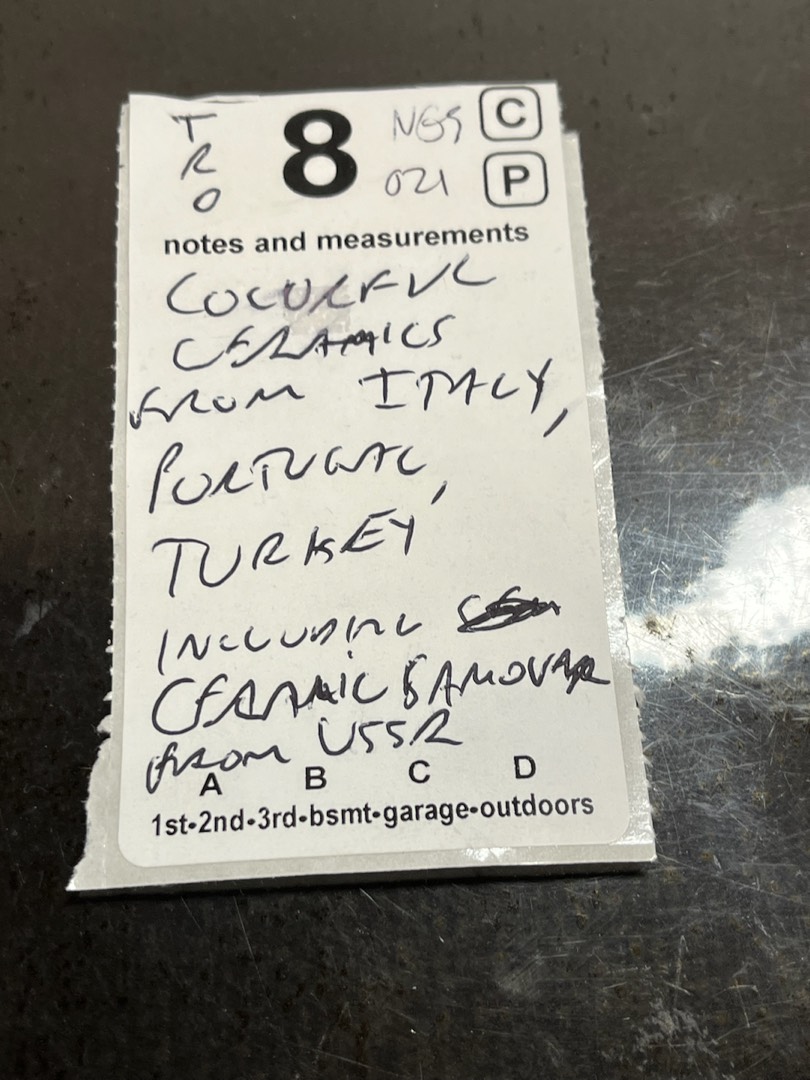 T R O 8 NGS C
021 P
notes and measurements
COLORFUL
CERAMICS
FROM ITALY,
PORTUGAL,
TURKEY
INCLUDING
CERAMIC SAMOVAR
FROM USSR
A B C D
1st-2nd-3rd-bsmt-garage-outdoors